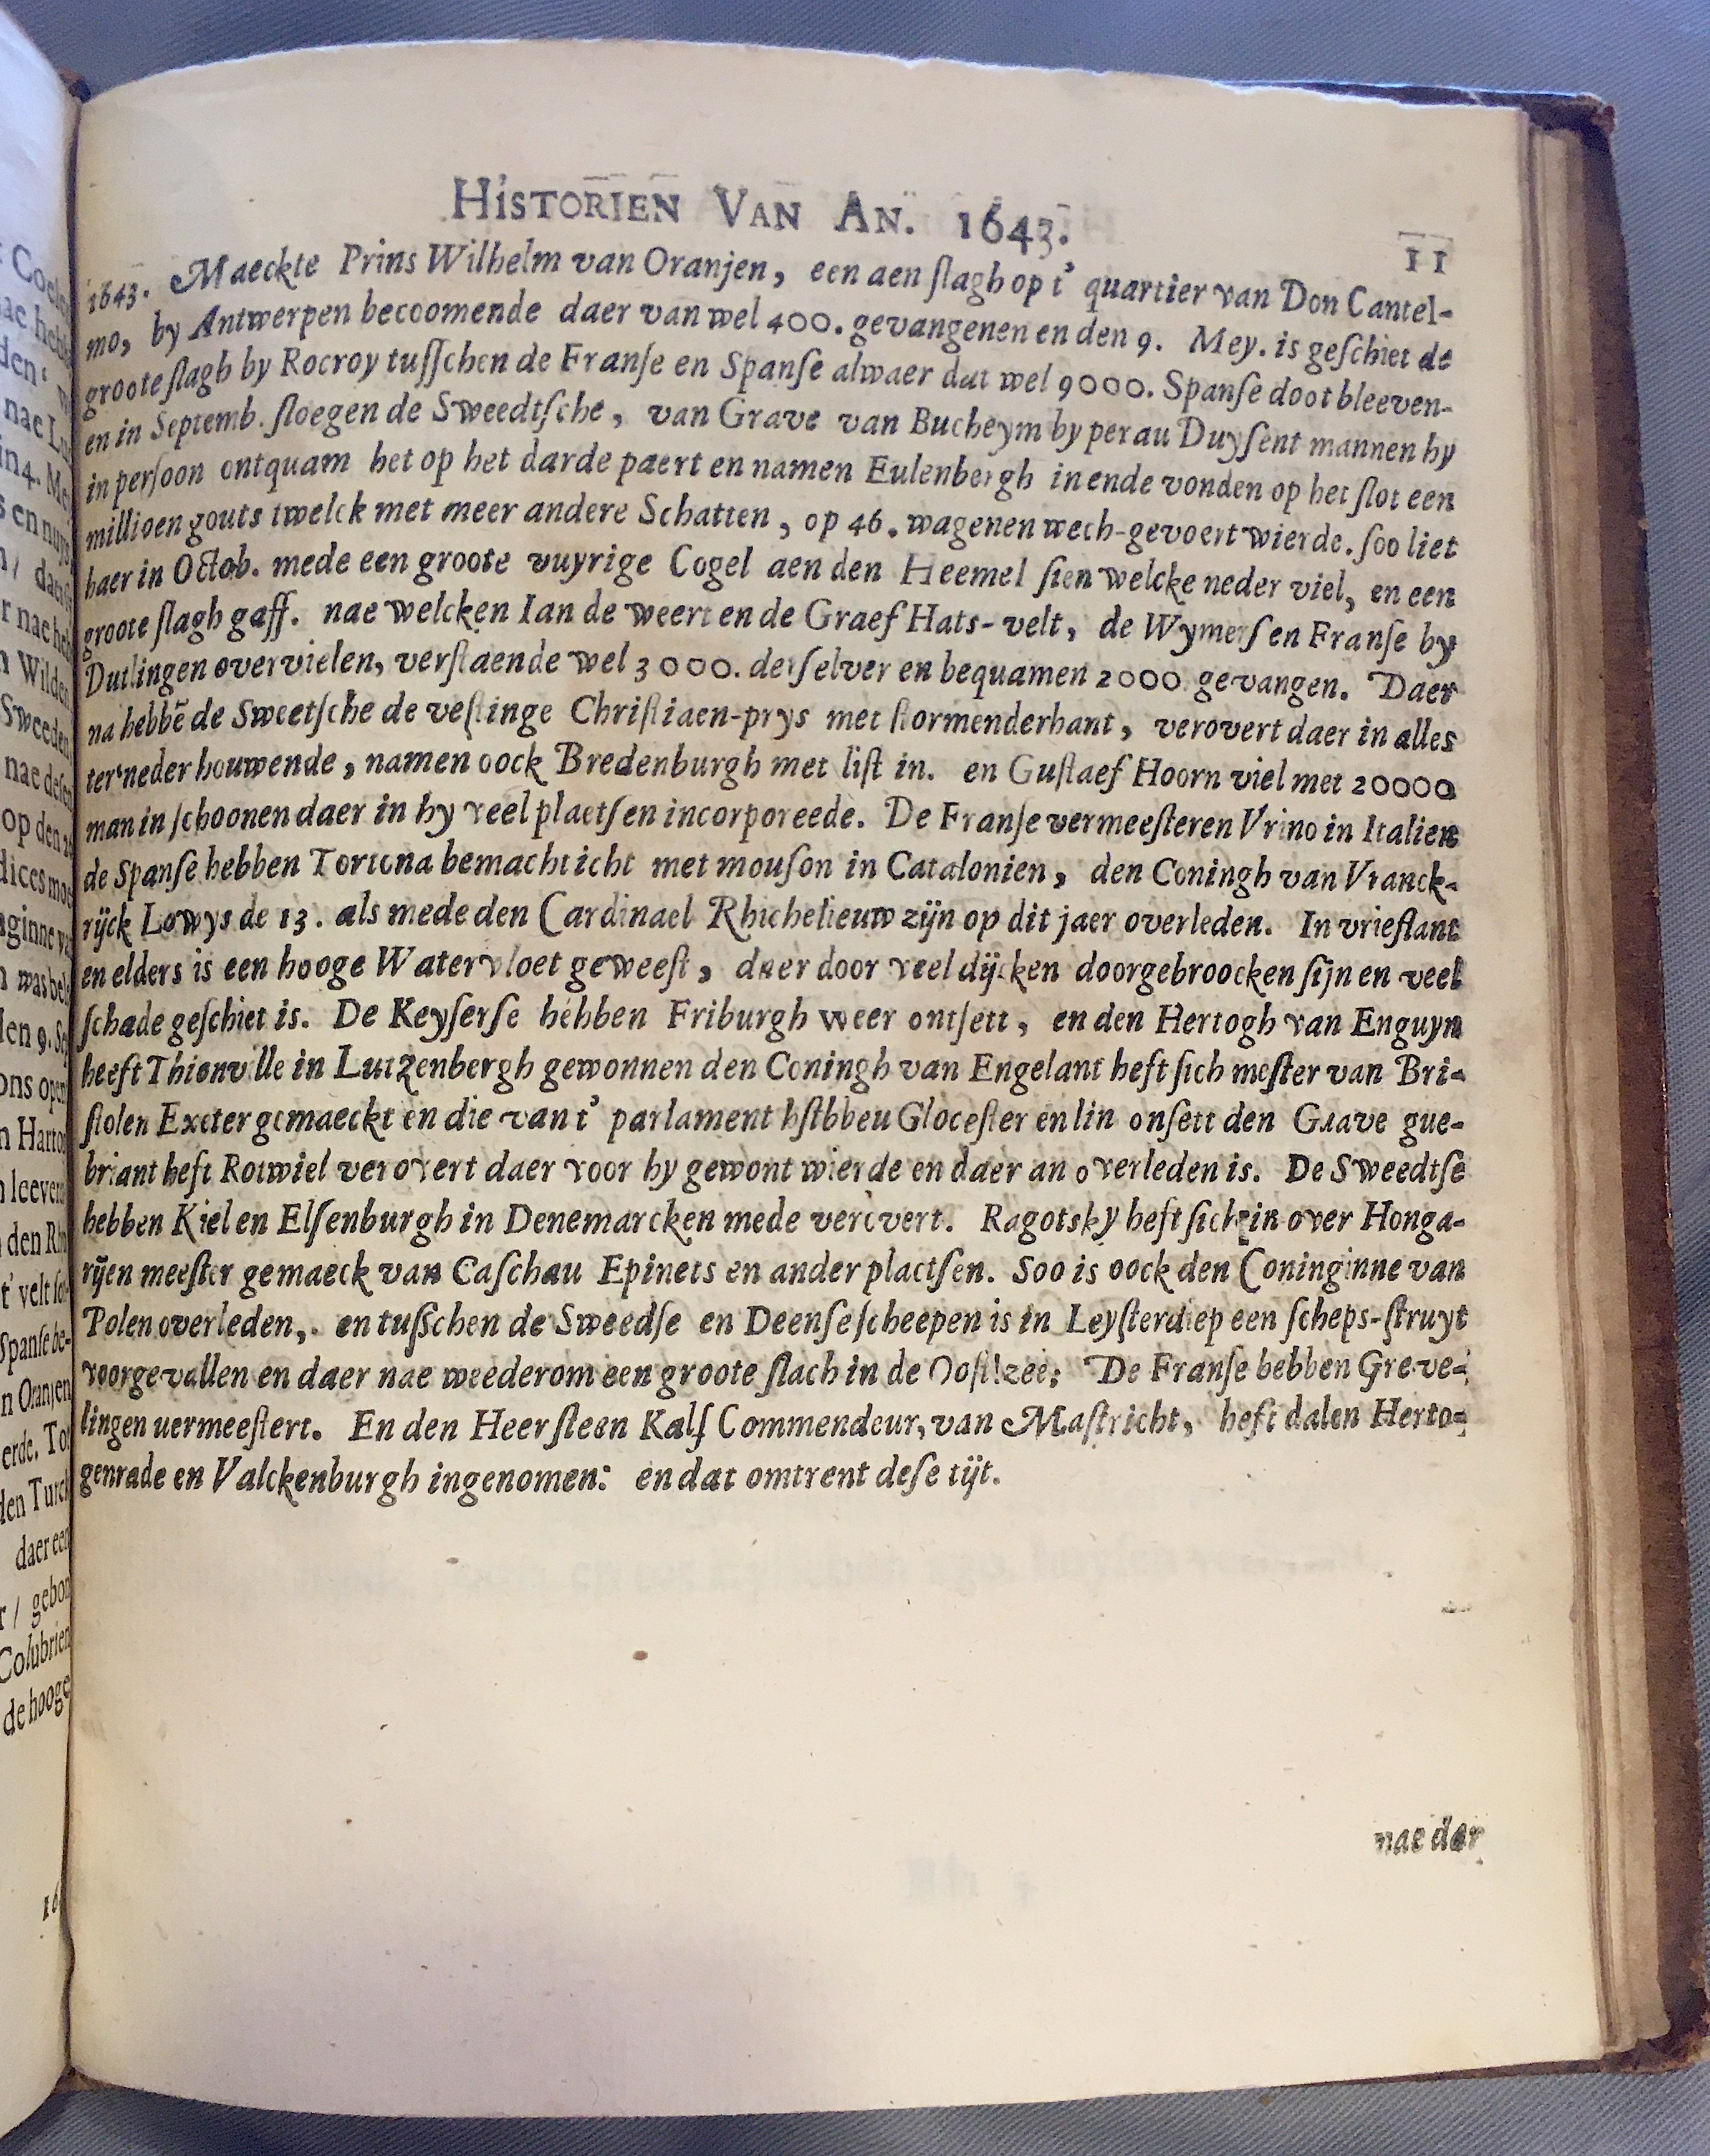 HISTORIEN VAN AN. 1643.
11
1643. Maeckte Prins Wilhelm van Oranjen, een aen ſlagh op t' quartier van Don Cantel-
mo, by Antwerpen becoomende daer van wel 400. gevangenen en den 9. Mey. is geſchiet de
groote ſlagh by Rocroy tuſſchen de Franſe en Spanſe alwaer dat wel 9000. Spanſe doot bleeven-
en in Septemb. ſloegen de Sweedtſche, van Grave van Bucheym by perau Duyſent mannen hy
in perſoon ontquam het op het darde paert en namen Eulenbergh in ende vonden op het ſlot een
millioen gouts twelck met meer andere Schatten, op 46. wagenen wech-gevoert wierde. ſoo liet
haer in Octob. mede een groote vuyrige Cogel aen den Heemel ſien welcke neder viel, en een
groote ſlagh gaff. nae welcken Ian de weert en de Graef Hats-velt, de Wymerſ en Franſe by
Dutlingen overvielen, verſlaende wel 3000. derſelver en bequamen 2000 gevangen. Daer
na hebbē de Sweetſche de veſtinge Chriſtiaen-prys met ſtormenderhant, verovert daer in alles
ter neder houwende, namen oock Bredenburgh met liſt in. en Guſtaef Hoorn viel met 20000
man in ſchoonen daer in hy veel plaetſen incorporeede. De Franſe vermeeſteren Vrino in Italien
de Spanſe hebben Tortona bemachticht met mouſon in Catalonien, den Coningh van Vranck-
rijck Lowys de 13. als mede den Cardinael Rhichelieuw zijn op dit jaer overleden. In vrieſlant
en elders is een hooge Watervloet geweeſt, daer door veel dijcken doorgebroocken ſijn en veel
ſchade geſchiet is. De Keyſerſe hebben Friburgh weer ontſett, en den Hertogh van Enguyn
heeft Thionville in Lutzenbergh gewonnen den Coningh van Engelant heft ſich meſter van Bri-
ſtolen Exceter gemaeckt en die van t' parlament hſtbbeu Gloceſter en lin onſett den Grave gue-
briant heft Rotwiel verovert daer voor hy gewont wierde en daer an overleden is. De Sweedtſe
hebben Kiel en Elſenburgh in Denemarcken mede verovert. Ragotsky heft ſich in over Honga-
rijen meeſter gemaeck van Caſchau Epinets en ander plactſen. Soo is oock den Coninginne van
Polen overleden, en tuſſchen de Sweedſe en Deenſe ſcheepen is in Leyſterdiep een ſcheps-ſtruyt
voorgevallen en daer nae weederom een groote ſlach in de Ooſtzee; De Franſe hebben Greve-
lingen uermeeſtert. En den Heer ſteen Kalſ Commendeur, van Maſtricht, heft dalen Herto-
genrade en Valckenburgh ingenomen: en dat omtrent deſe tijt.
nae der